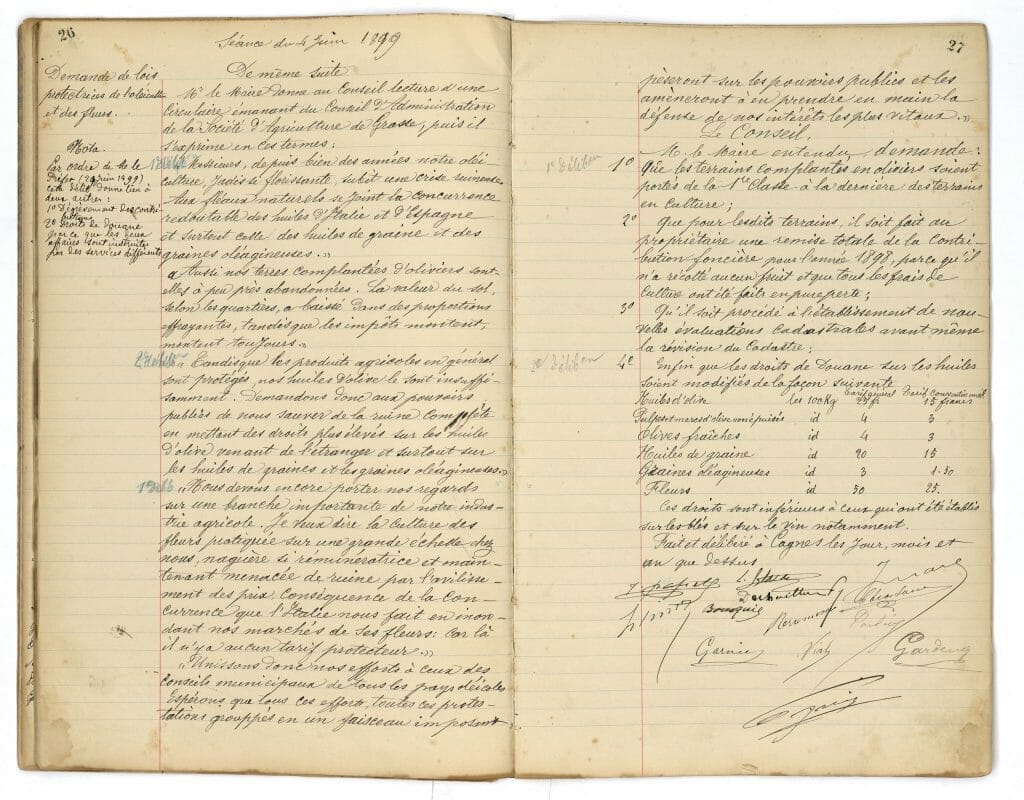 26
Séance du 4 Juin 1899
Demande de lois
protectrices de l'oléiculture
et des fleurs.
Nota.
Par ordre de M. le
Préfet (29 juin 1899)
cette délib. donne lieu à
deux autres :
1° Dégrèvement des contri-
butions
2° Droits de Douane
parce que les deux
affaires sont instruites
par des services différents
De même suite
Mr le Maire donne au Conseil lecture d'une
circulaire émanant du Conseil d'Administration
de la Société d'Agriculture de Grasse, puis il
s'exprime en ces termes :
"Messieurs, depuis bien des années notre oléi-
culture, jadis si florissante, subit une crise ruineuse
Aux fléaux naturels se joint la concurrence
redoutable des huiles d'Italie et d'Espagne
et surtout celle des huiles de graine et des
graines oléagineuses."
"Aussi nos terres complantées d'oliviers sont-
elles à peu près abandonnées. La valeur du sol,
selon les quartiers, a baissé dans des proportions
effrayantes, tandis que les impôts montent,
montent toujours."
"Tandis que les produits agricoles en général
sont protégés, nos huiles d'olive le sont insuffi-
samment. Demandons donc aux pouvoirs
publics de nous sauver de la ruine complète
en mettant des droits plus élevés sur les huiles
d'olive venant de l'étranger et surtout sur
les huiles de graines et les graines oléagineuses."
"Nous devons encore porter nos regards
sur une branche importante de notre indus-
trie agricole. Je veux dire la culture des
fleurs pratiquée sur une grande échelle chez
nous, naguère si rémunératrice et main-
tenant menacée de ruine par l'avilisse-
ment des prix. Conséquence de la con-
currence que l'Italie nous fait en inon-
dant nos marchés de ses fleurs : Car là
il n'y a aucun tarif protecteur."
"Unissons donc nos efforts à ceux des
conseils municipaux de tous les pays oléicoles
Espérons que tous ces efforts, toutes ces protes-
tations grouppés en un faisceau imposant
27
pèseront sur les pouvoirs publics et les
amèneront à en prendre en main la
défense de nos intérêts les plus vitaux."
Le Conseil,
M. le Maire entendu, demande :
1e Délibon
1° Que les terrains complantés en oliviers soient
portés de la 1re Classe à la dernière des terrains
en culture ;
2° Que pour lesdits terrains, il soit fait au
propriétaire une remise totale de la contri-
bution foncière pour l'année 1898, parce qu'il
n'a récolté aucun fruit et que tous les frais de
culture ont été faits en pure perte ;
3° Qu'il soit procédé à l'établissement de nou-
velles évaluations cadastrales avant même
la révision du Cadastre ;
2e Délibon
4° Enfin que les droits de Douane sur les huiles
soient modifiés de la façon suivante
Tarif général Tarif conventionnel
Huiles d'olive les 100 Kg 25 fr 15 francs
Pulpes et marcs d'olive non épuisés id 4 3
Olives fraîches id 4 3
Huiles de graine id 20 15
Graines oléagineuses id 3 1.50
Fleurs id 50 25.
Ces droits sont inférieurs à ceux qui ont été établis
sur les blés et sur le vin notamment.
Fait et délibéré à Cagnes les Jour, mois et
an que dessus
Garnier